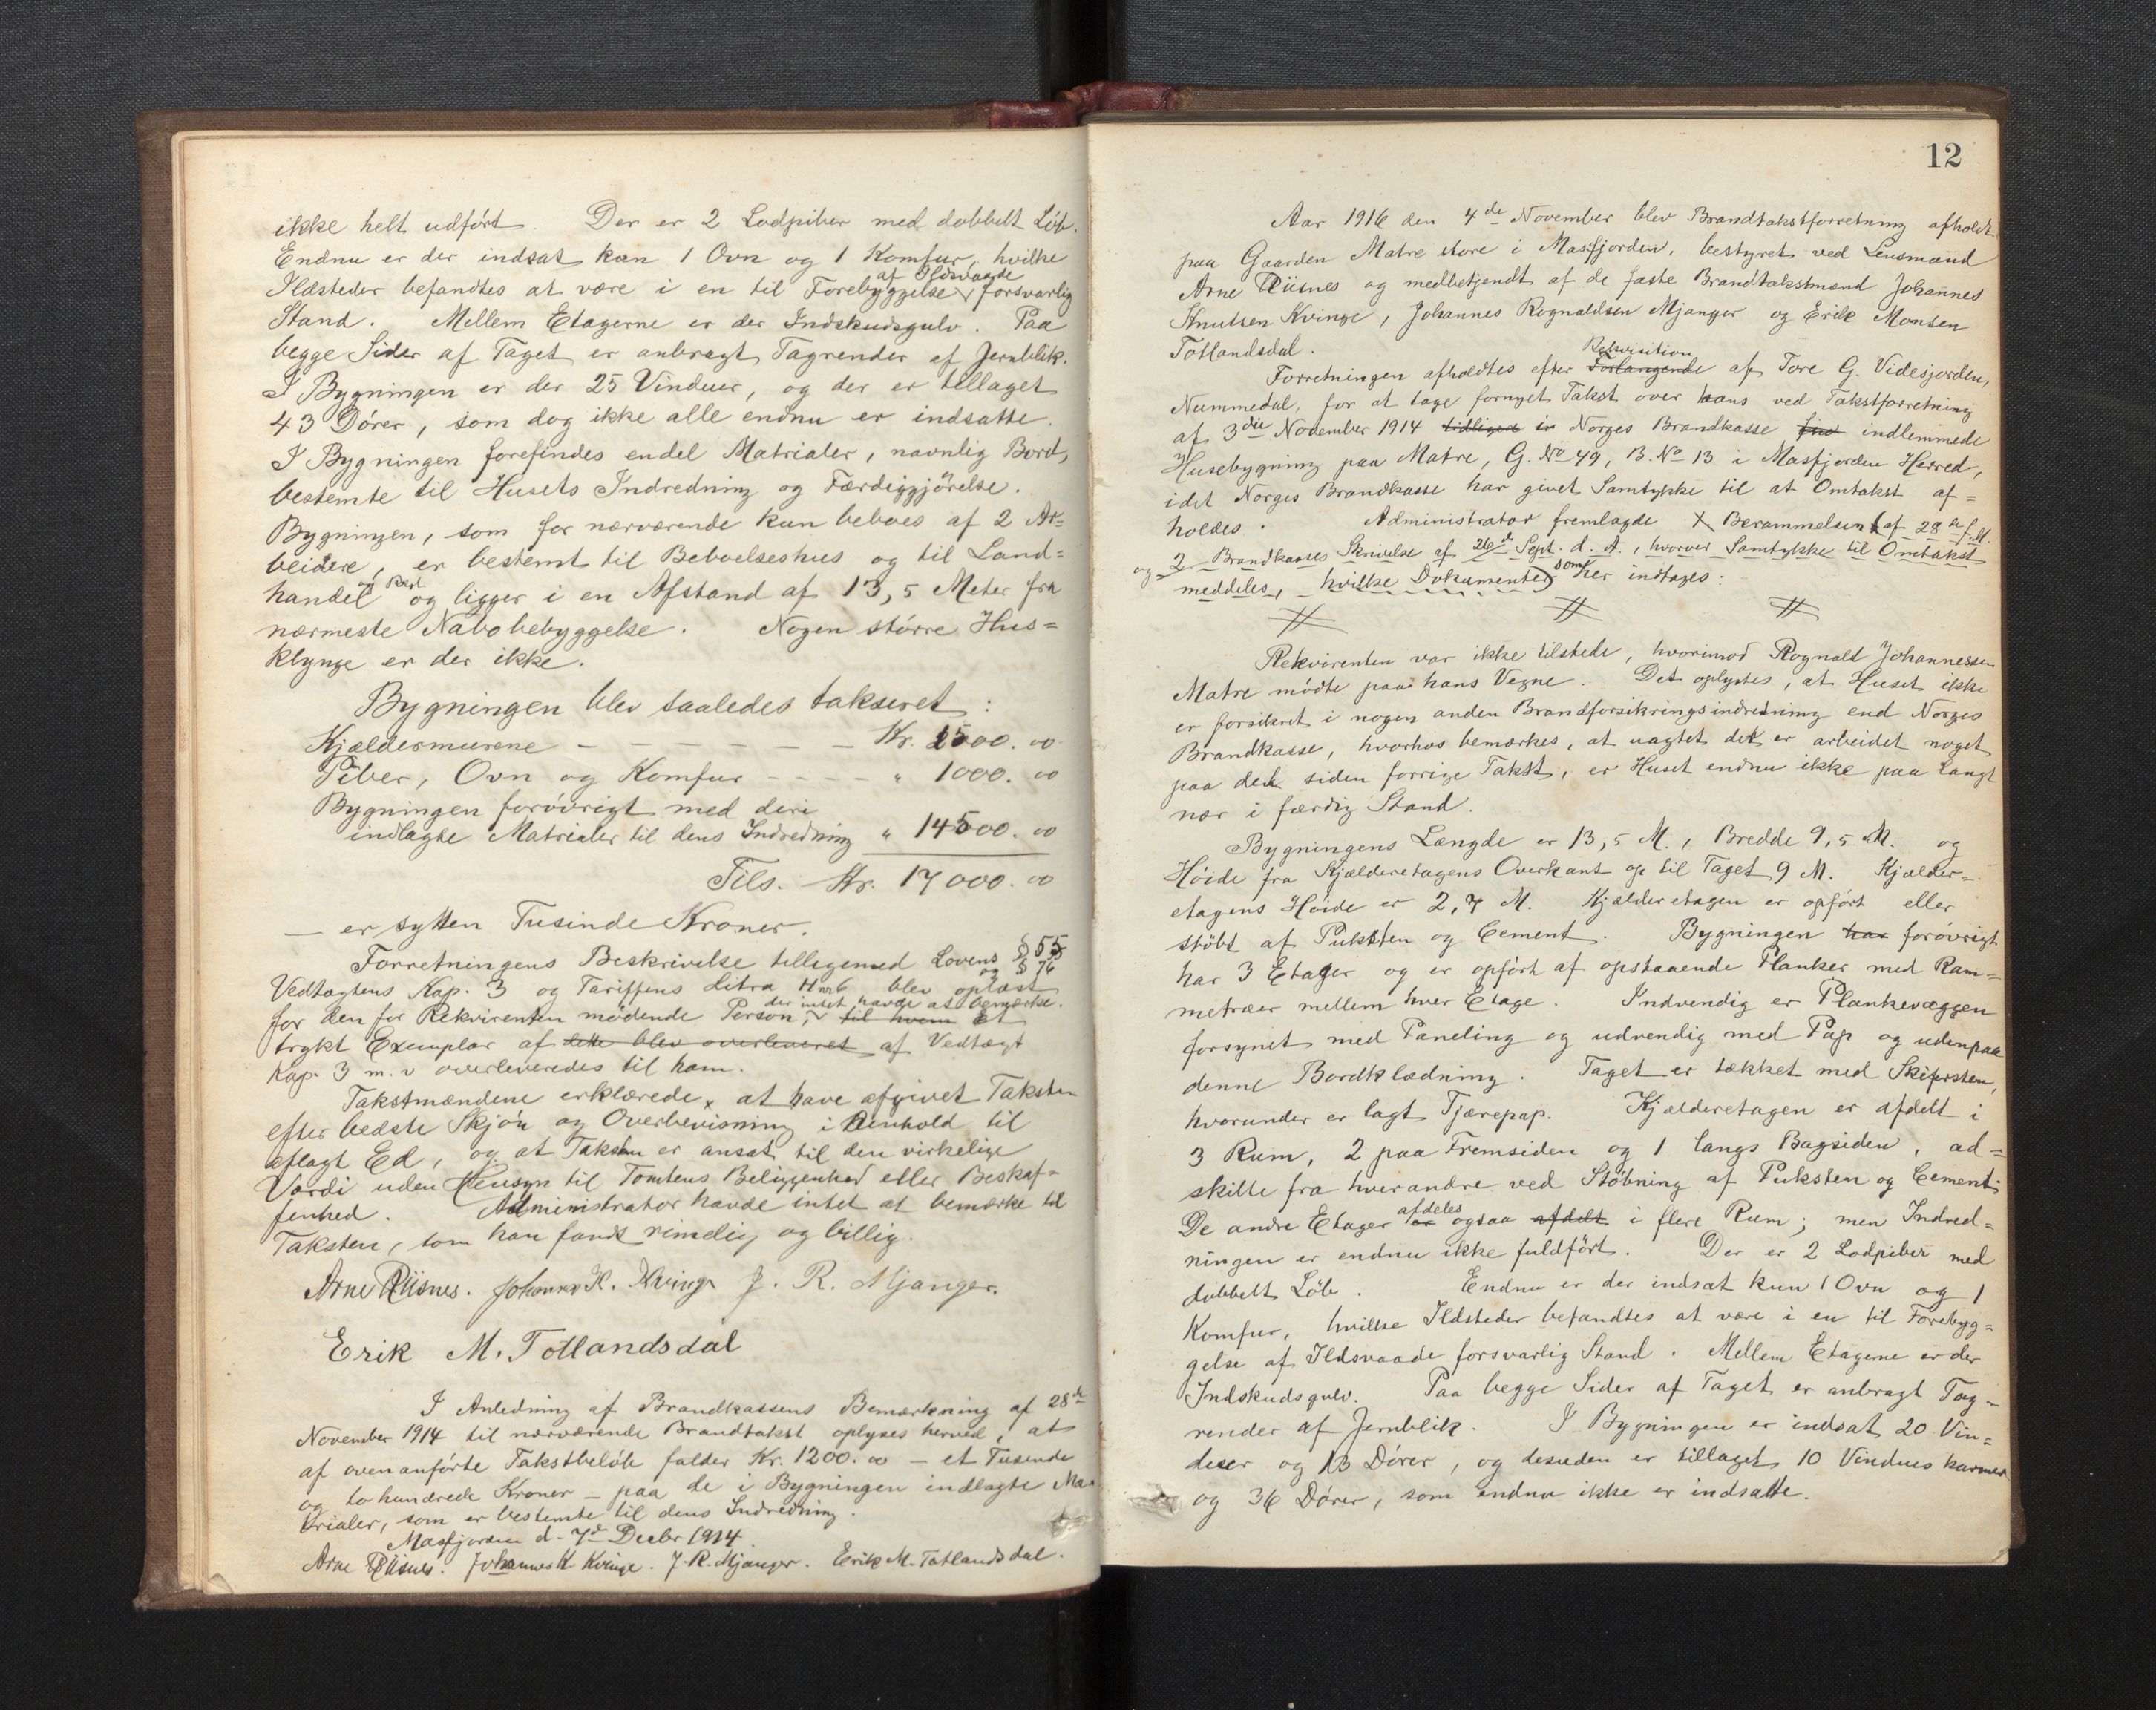 ikke helt udført. Der er 2 Lodpiber med dobbelt Løb.
Endnu er der indsat kun 1 Ovn og 1 Komfur, hvilke
af Ildsvaade
Ildsteder befandtes at være i en til Forebyggelse √ forsvarlig
Stand. Mellem Etagerne er der Indskudsgulv. Paa
begge Sider af Taget er anbragt Tagrender af Jernblik.
I Bygningen er der 25 Vinduer, og der er tillaget
43 Dører, som dog ikke alle endnu er indsatte.
I Bygningen forefindes endel Matrialer, navnlig Bord,
bestemte til Husets Indredning og Færdiggjörelse.
Bygningen, som for nærværende kun beboes af 2 Ar=
beidere, er bestemt til Beboelseshus og til Land=
handel og ligger i en Afstand af 13,5 Meter fra
nærmeste Nabobebyggelse. Nogen större Hus=
klynge er der ikke.
Bygningen blev saaledes takseret:
Kjældermurene – – – – – – Kr. 1500.00
Piber, Ovn og Komfur – – – – " 1000.00
Bygningen forövrigt med deri
indlagte Matrialer til dens Indredning " 14500.00
Tils. Kr. 17000.00
– er sytten Tusinde Kroner.
Forretningens Beskrivelse tilligemed Lovens § 55
og § 76
Vedtægtens Kap. 3 og Tariffens Litra H nr 6 blev oplæst
der intet havde at bemærke.
for den for Rekvirenten mödende Person, √ til hvem Et
trykt Exemplar af dette blev overleveret af Vedtægt
Kap. 3 m.v overleveredes til ham.
Takstmændene erklærede, at have afgivet Taksten
efter bedste Skjön og Overbevisning i Henhold til
aflagt Ed, og at Taksten er ansat til den virkelige
Værdi uden Hensyn til Tomtens Beliggenhed eller Beskaf=
fenhed. Administrator havde intet at bemærke til
Taksten, som han fandt rimelig og billig.
Arne Riisnes. Johannes K. Kvinge J. R. Mjanger.
Erik M. Totlandsdal
I Anledning af Brandkassens Bemærkning af 28de
November 1914 til nærværende Brandtakst oplyses herved, at
af ovenanförte Takstbelöb falder Kr. 1200.00 – et Tusende
og to hundrede Kroner – paa de i Bygningen indlagte Ma
trialer, som er bestemte til dens Indredning.
Masfjorden d. 7de Decbr 1914.
Arne Riisnes. Johannes K. Kvinge. J. R. Mjanger. Erik M. Totlandsdal.
12
Aar 1916 den 4de November blev Brandtakstforretning afholdt
paa Gaarden Matre store i Masfjorden, bestyret ved Lensmand
Arne Riisnes og medbetjendt af de faste Brandtakstmænd Johannes
Knutsen Kvinge, Johannes Rognaldsen Mjanger og Erik Monsen
Totlandsdal.
Rekvisition
Forretningen afholdtes efter Forlangende af Tore G. Videsjorden,
Nummedal, for at tage fornyet Takst over hans ved Takstforretning
af 3die November 1914 tidligere i Norges Brandkasse indlemmede
Husebygning paa Matre, G. No 49, B. No 13 i Masfjorden Herred,
idet Norges Brandkasse har givet Samtykke til at Omtakst af=
holdes. Administrator fremlagde 1, Berammelsen af 28de f.M.
og 2, Brandkasses Skrivelse af 26de Sept. d.A., hvorved Samtykke til Omtakst
meddeles, hvilke Dokumenter som her indtages:
# # #
Rekvirenten var ikke tilstede, hvorimod Rognald Johannessen
Matre mödte paa hans Vegne. Det oplystes, at Huset ikke
er forsikret i nogen anden Brandforsikringsindretning end Norges
Brandkasse, hvorhos bemærkes, at uagtet der er arbeidet noget
paa det siden forrige Takst, er Huset endnu ikke paa langt
nær i færdig Stand.
Bygningens Længde er 13,5 M., Bredde 9,5 M. og
Höide fra Kjælderetagens Overkant op til Taget 9 M. Kjælder=
etagens Höide er 2,7 M. Kjælderetagen er opfört eller
stöbt af Puksten og Cement. Bygningen har forövrigt
har 3 Etager og er opfört af opstaaende Planker med Ram=
metræer mellem hver Etage. Indvendig er Plankevæggen
forsynet med Paneling og udvendig med Pap og udenpaa
denne Bordklædning. Taget er tækket med Skifersten,
hvorunder er lagt Tjærepap. Kjælderetagen er afdelt i
3 Rum, 2 paa Fremsiden og 1 langs Bagsiden, ad=
skilte fra hverandre ved Stöbning af Puksten og Cement.
afdeles
De andre Etager er ogsaa afdelt i flere Rum; men Indred=
ningen er endnu ikke fuldfört. Der er 2 Lodpiber med
dobbelt Löb. Endnu er der indsat kun 1 Ovn og 1
Komfur, hvilke Ildsteder befandtes at være i en til Forebyg=
gelse af Ildsvaade forsvarlig Stand. Mellem Etagerne er der
Indskudsgulv. Paa begge Sider af Taget er anbragt Tag=
render af Jernblik. I Bygningen er indsat 20 Vin=
duer og 13 Dörer, og desuden er tillaget 10 Vindues karmer
og 36 Dörer, som endnu ikke er indsatte.